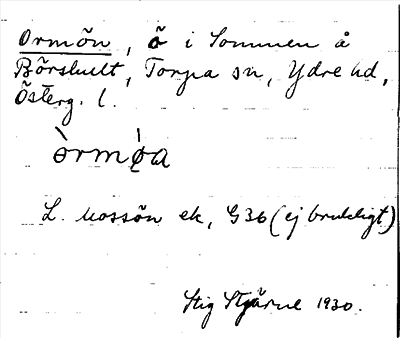 Ormön, ö i Sommen å
Börshult, Torpa sn, Ydre hd,
Österg. l.
òrmǫ̀a
L. Mossön ek, G36 (ej brukligt)
Stig Stjärne 1930.